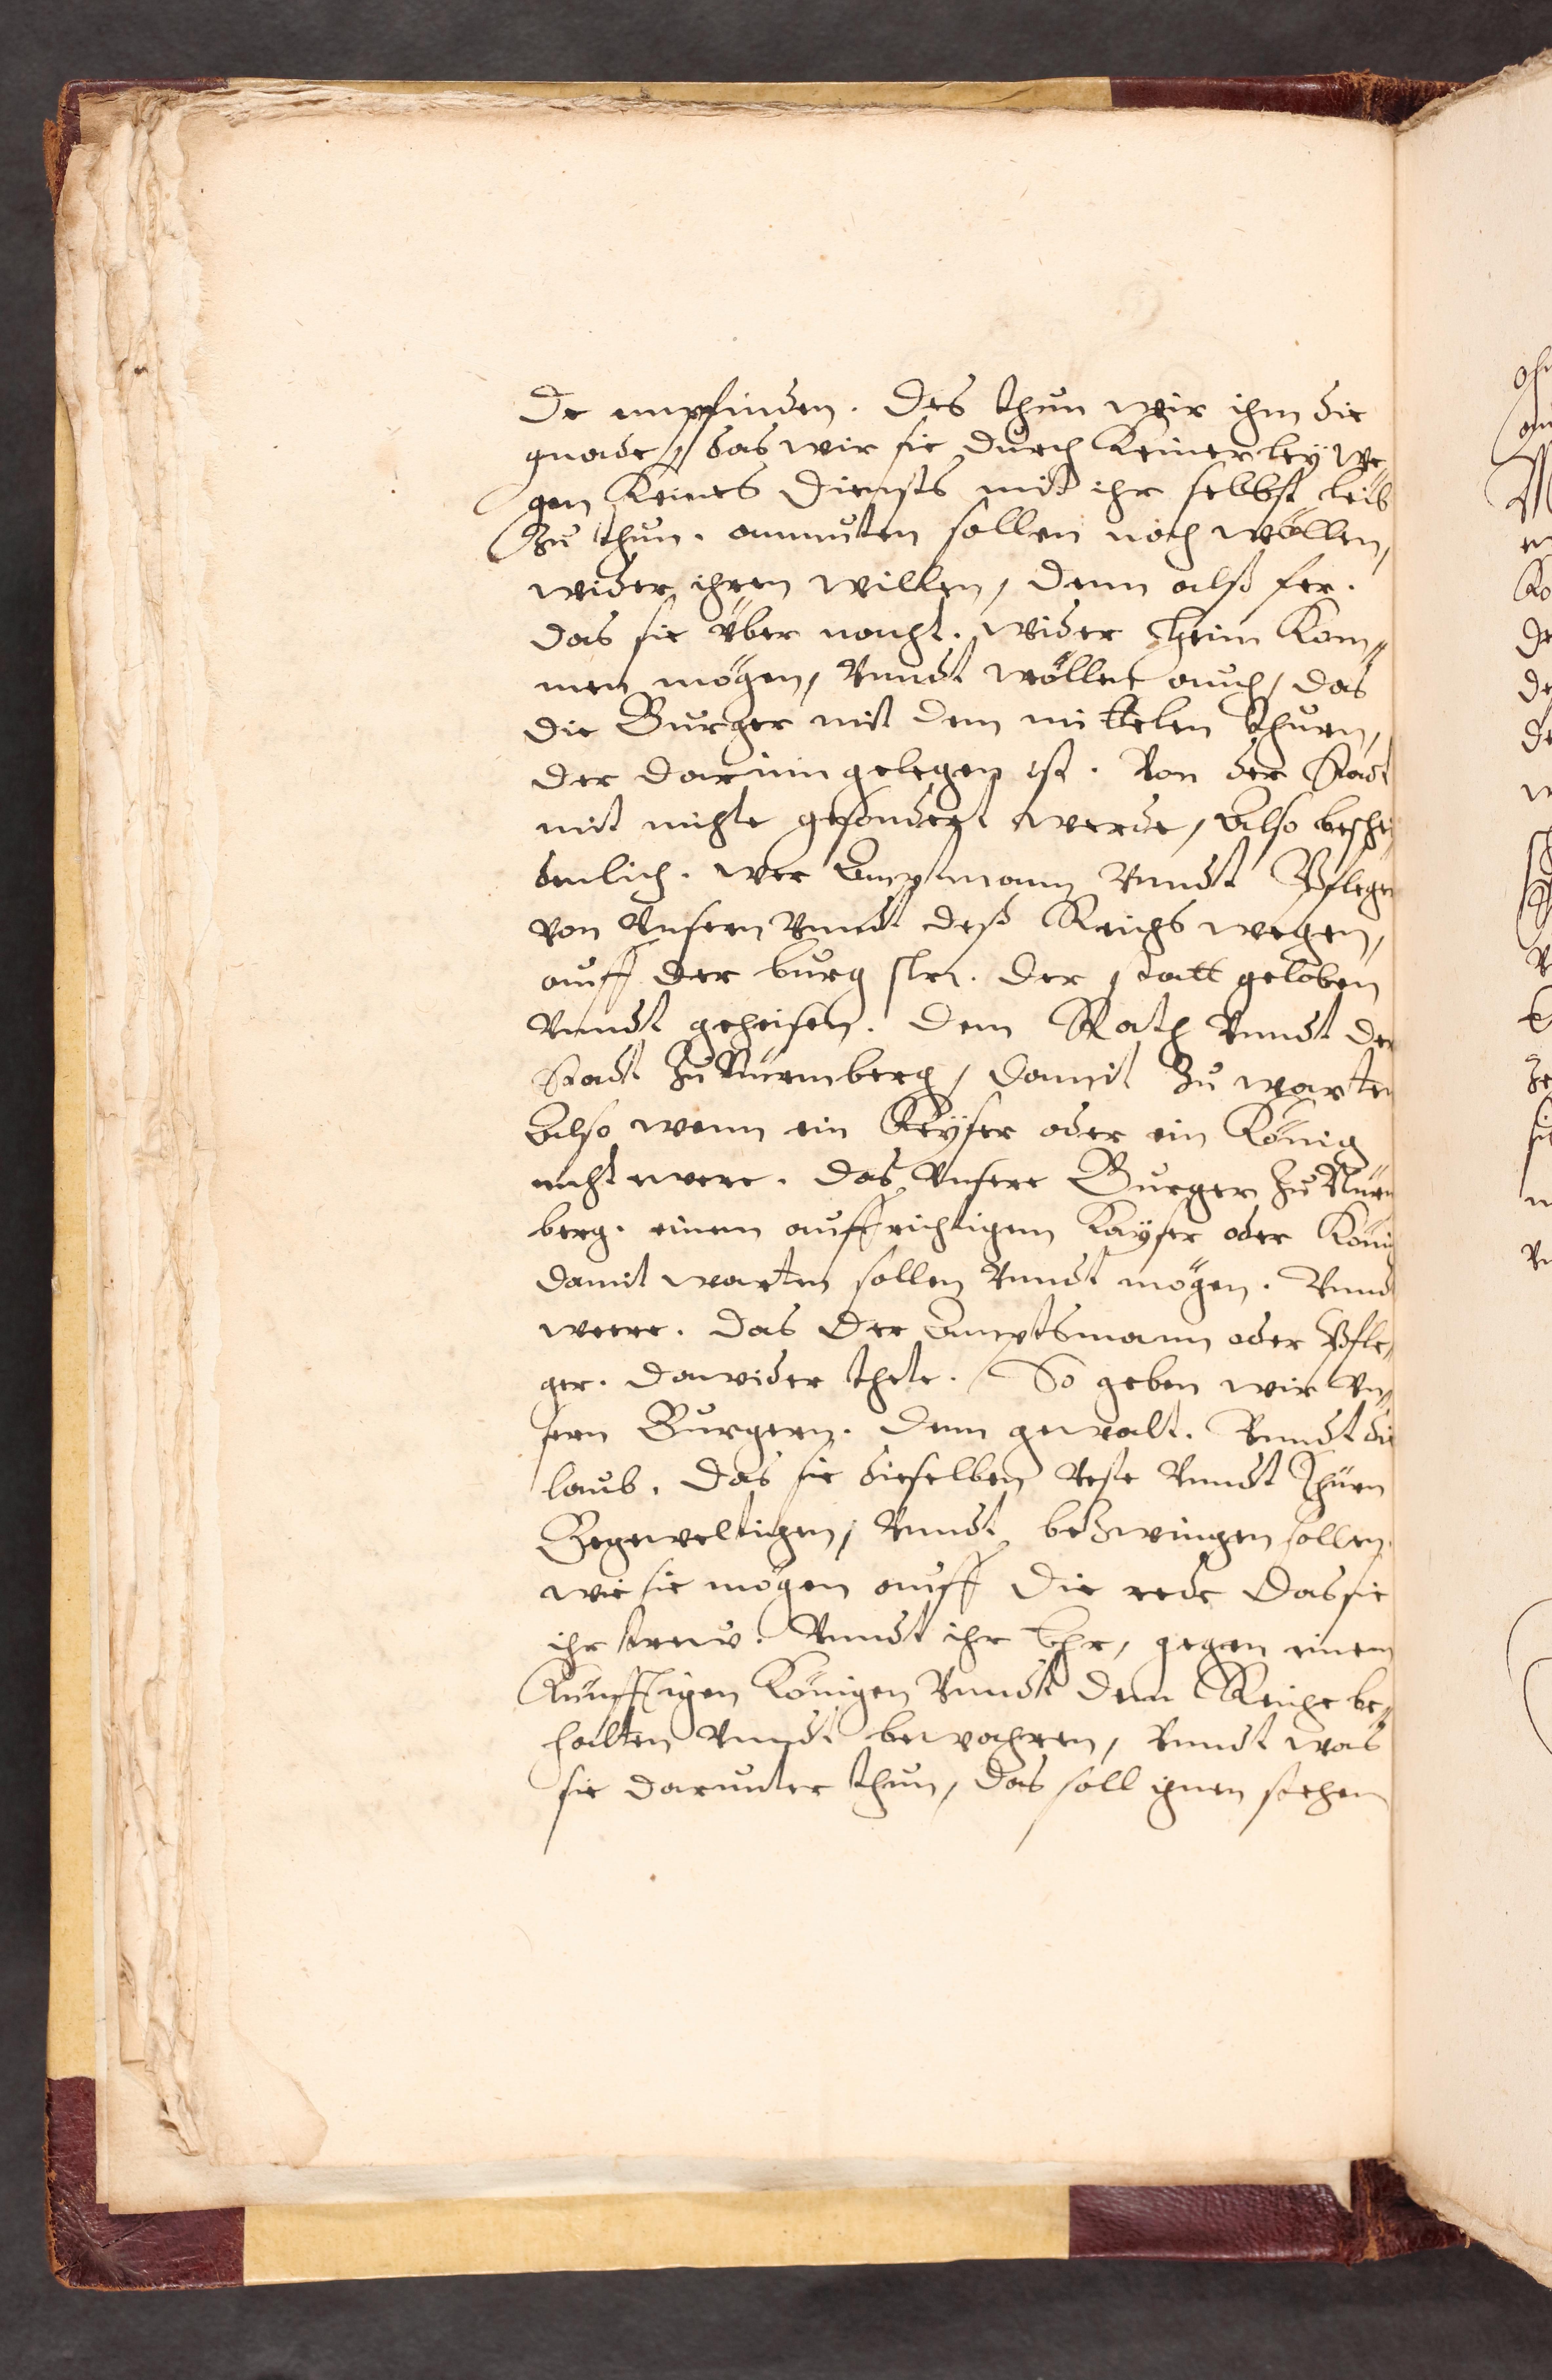 De empfinden. Des thun wir ihm die
gnade, das wir sie durch Keinerley we„
gen Keines Diensts mit ihr selbst leib
Zu thun. anmuten sollen noch wöllen,
wider ihren willen, denn alß fer.
das sie über nacht. wider Heim Kom„
men mögen, Vnndt wöllen auch, das
die Burger mit dem mittelen Thurn,
der darinn gelegen ist. Von der Stadt
mit nichte gesondert werde, Also beschei
denlich. wer Amptmann Vnndt Pfleger
von Vnsern Vnndt deß Reichs wegen,
auff der burg sey. der statt geloben
Vnndt geheisen. dem Rath Vnndt der
Stadt Zu Nürmberg, damit Zu warten
Also wenn ein Keyser oder ein König
nicht were. das Vnsere Burger Zu Nürn
berg. einem auffrichtigem Kayser oder König
damit warten sollen Vnndt mögen. Vnnd
weere. das der Amptsmann oder Pfle„
ger. dawider thete. So geben wir Vn„
sern Burgern. denn gewalt. Vnndt die
laub. das sie dieselben Veste Vnndt Thürn
Gegeweltigen, Vnndt beZwingen sollen.
wie sie mögen auff die rede das sie
ihr trew. Vnndt ihr Ehr, gegen einem
Künfftigen Königen Vnndt dem Reiche be„
halten Vnndt bewahren, Vnndt was
sie darunter thun, das soll ihnen stehen